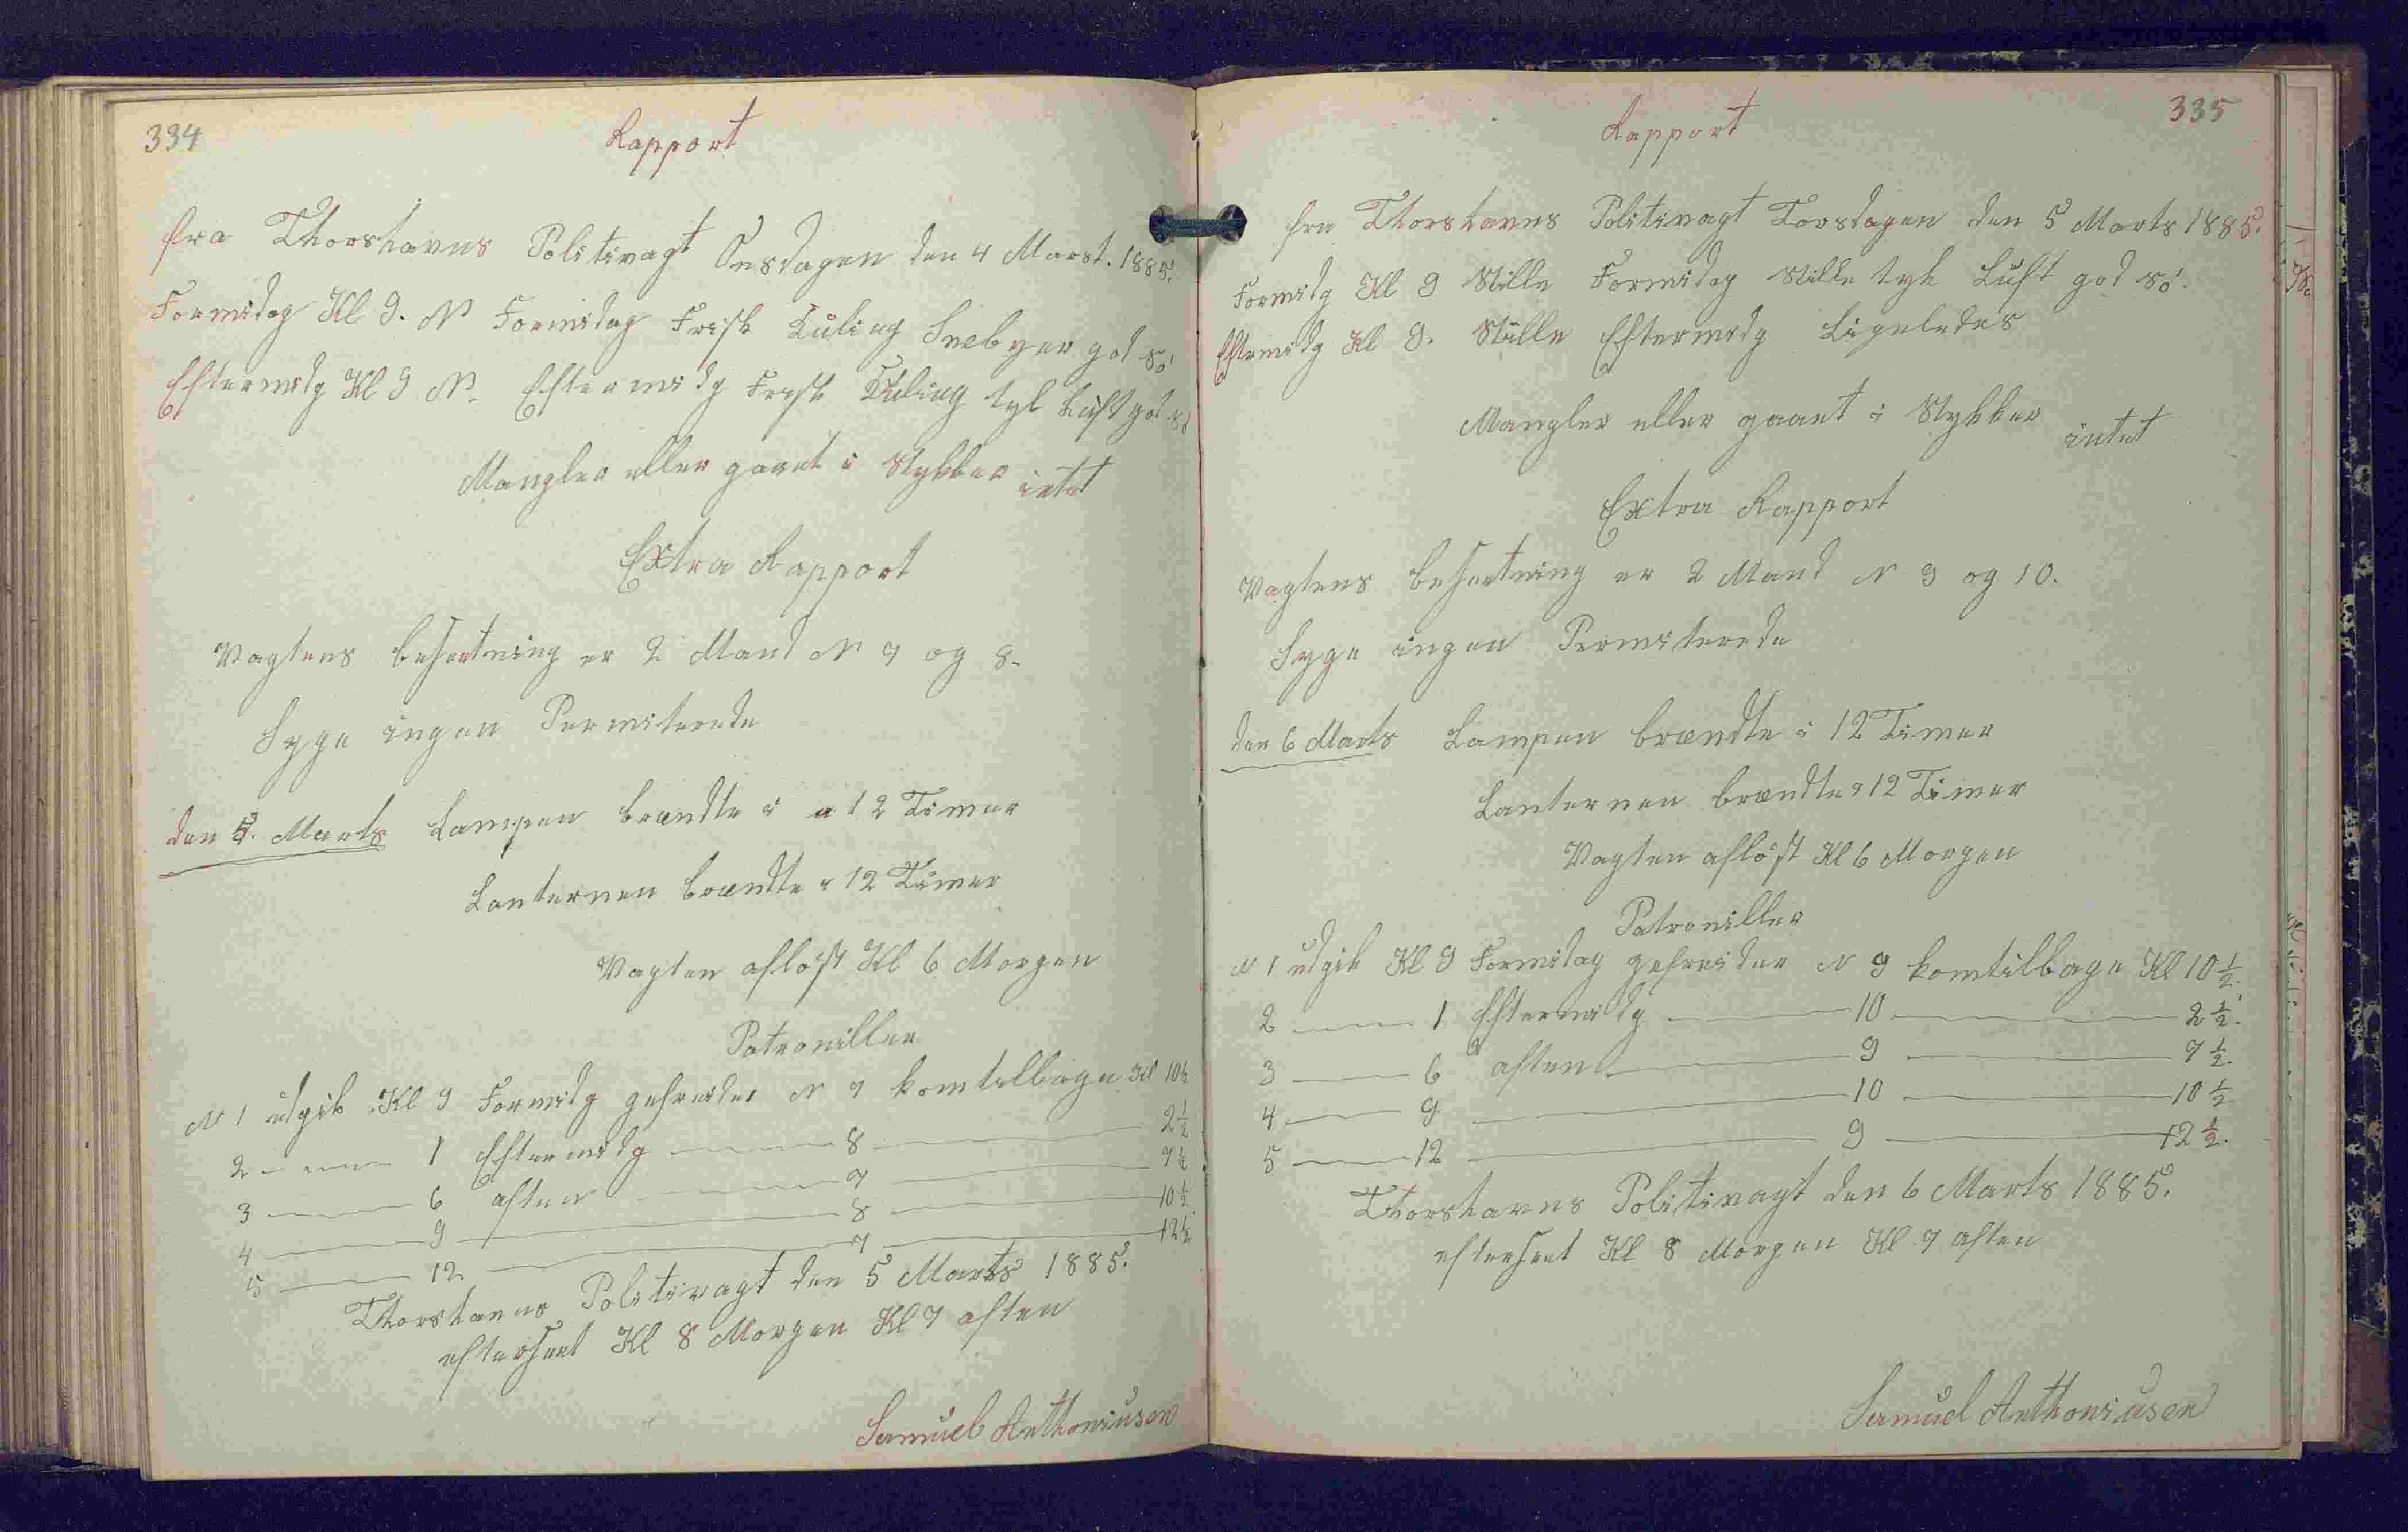 334
Rapport
fra Thorshavns Politivagt Onsdagen den 4 Marst. 1885.
Formidag Kl 9. N Formidag Frisk Kuling Snebyer god Sö
Eftermidg Kl 9 N. Eftermidg Frisk Kuling tyk Luft god Sö
Mangler eller gaaet i Stykker intet
Extra Rapport
Vagtens besætning er 2 Mand N 7 og 8.
Syge ingen Permiterede
den 5. Marts Lampen brændte i 12 Timer
Lanternen brændte i 12 Timer
Vagten aflöst Kl 6 Morgen
Patroniller
N 1 udgik Kl 9 Formidg gefreider N 7 kom tilbage Kl 10½
2 — 1 Eftermidg — 8 — 2½
3 — 6 aften — 7 — 7½
4 — 9 — 8 — 10½
5 — 12 — 7 — 12½
Thorshavns Politivagt den 5 Marts 1885.
efterseet Kl 8 Morgen Kl 7 aften
Samuel Anthoniusen
335
Rapport
fra Thorshavns Politivagt Torsdagen den 5 Marts 1885.
Formidg Kl 9 Stille Formidag Stille tyk Luft god Sö.
Eftermidg Kl 9. Stille Eftermidg Ligeledes
Mangler eller gaaet i Stykker intet
Extra Rapport
Vagtens besætning er 2 Mand N 9 og 10.
Syge ingen Permiterede
den 6 Marts Lampen brændte i 12 Timer
Lanternen brændte i 12 Timer
Vagten aflöst Kl 6 Morgen
Patroniller
N 1 udgik Kl 9 Formidag gefreider N 9 kom tilbage Kl 10½
2 — 1 Eftermidg — 10 — 2½.
3 — 6 aften — 9 — 7½
4 — 9 — 10 — 10½
5 — 12 — 9 — 12½.
Thorshavns Politivagt den 6 Marts 1885.
efterseet Kl 8 Morgen Kl 7 aften
Samuel Anthoniusen